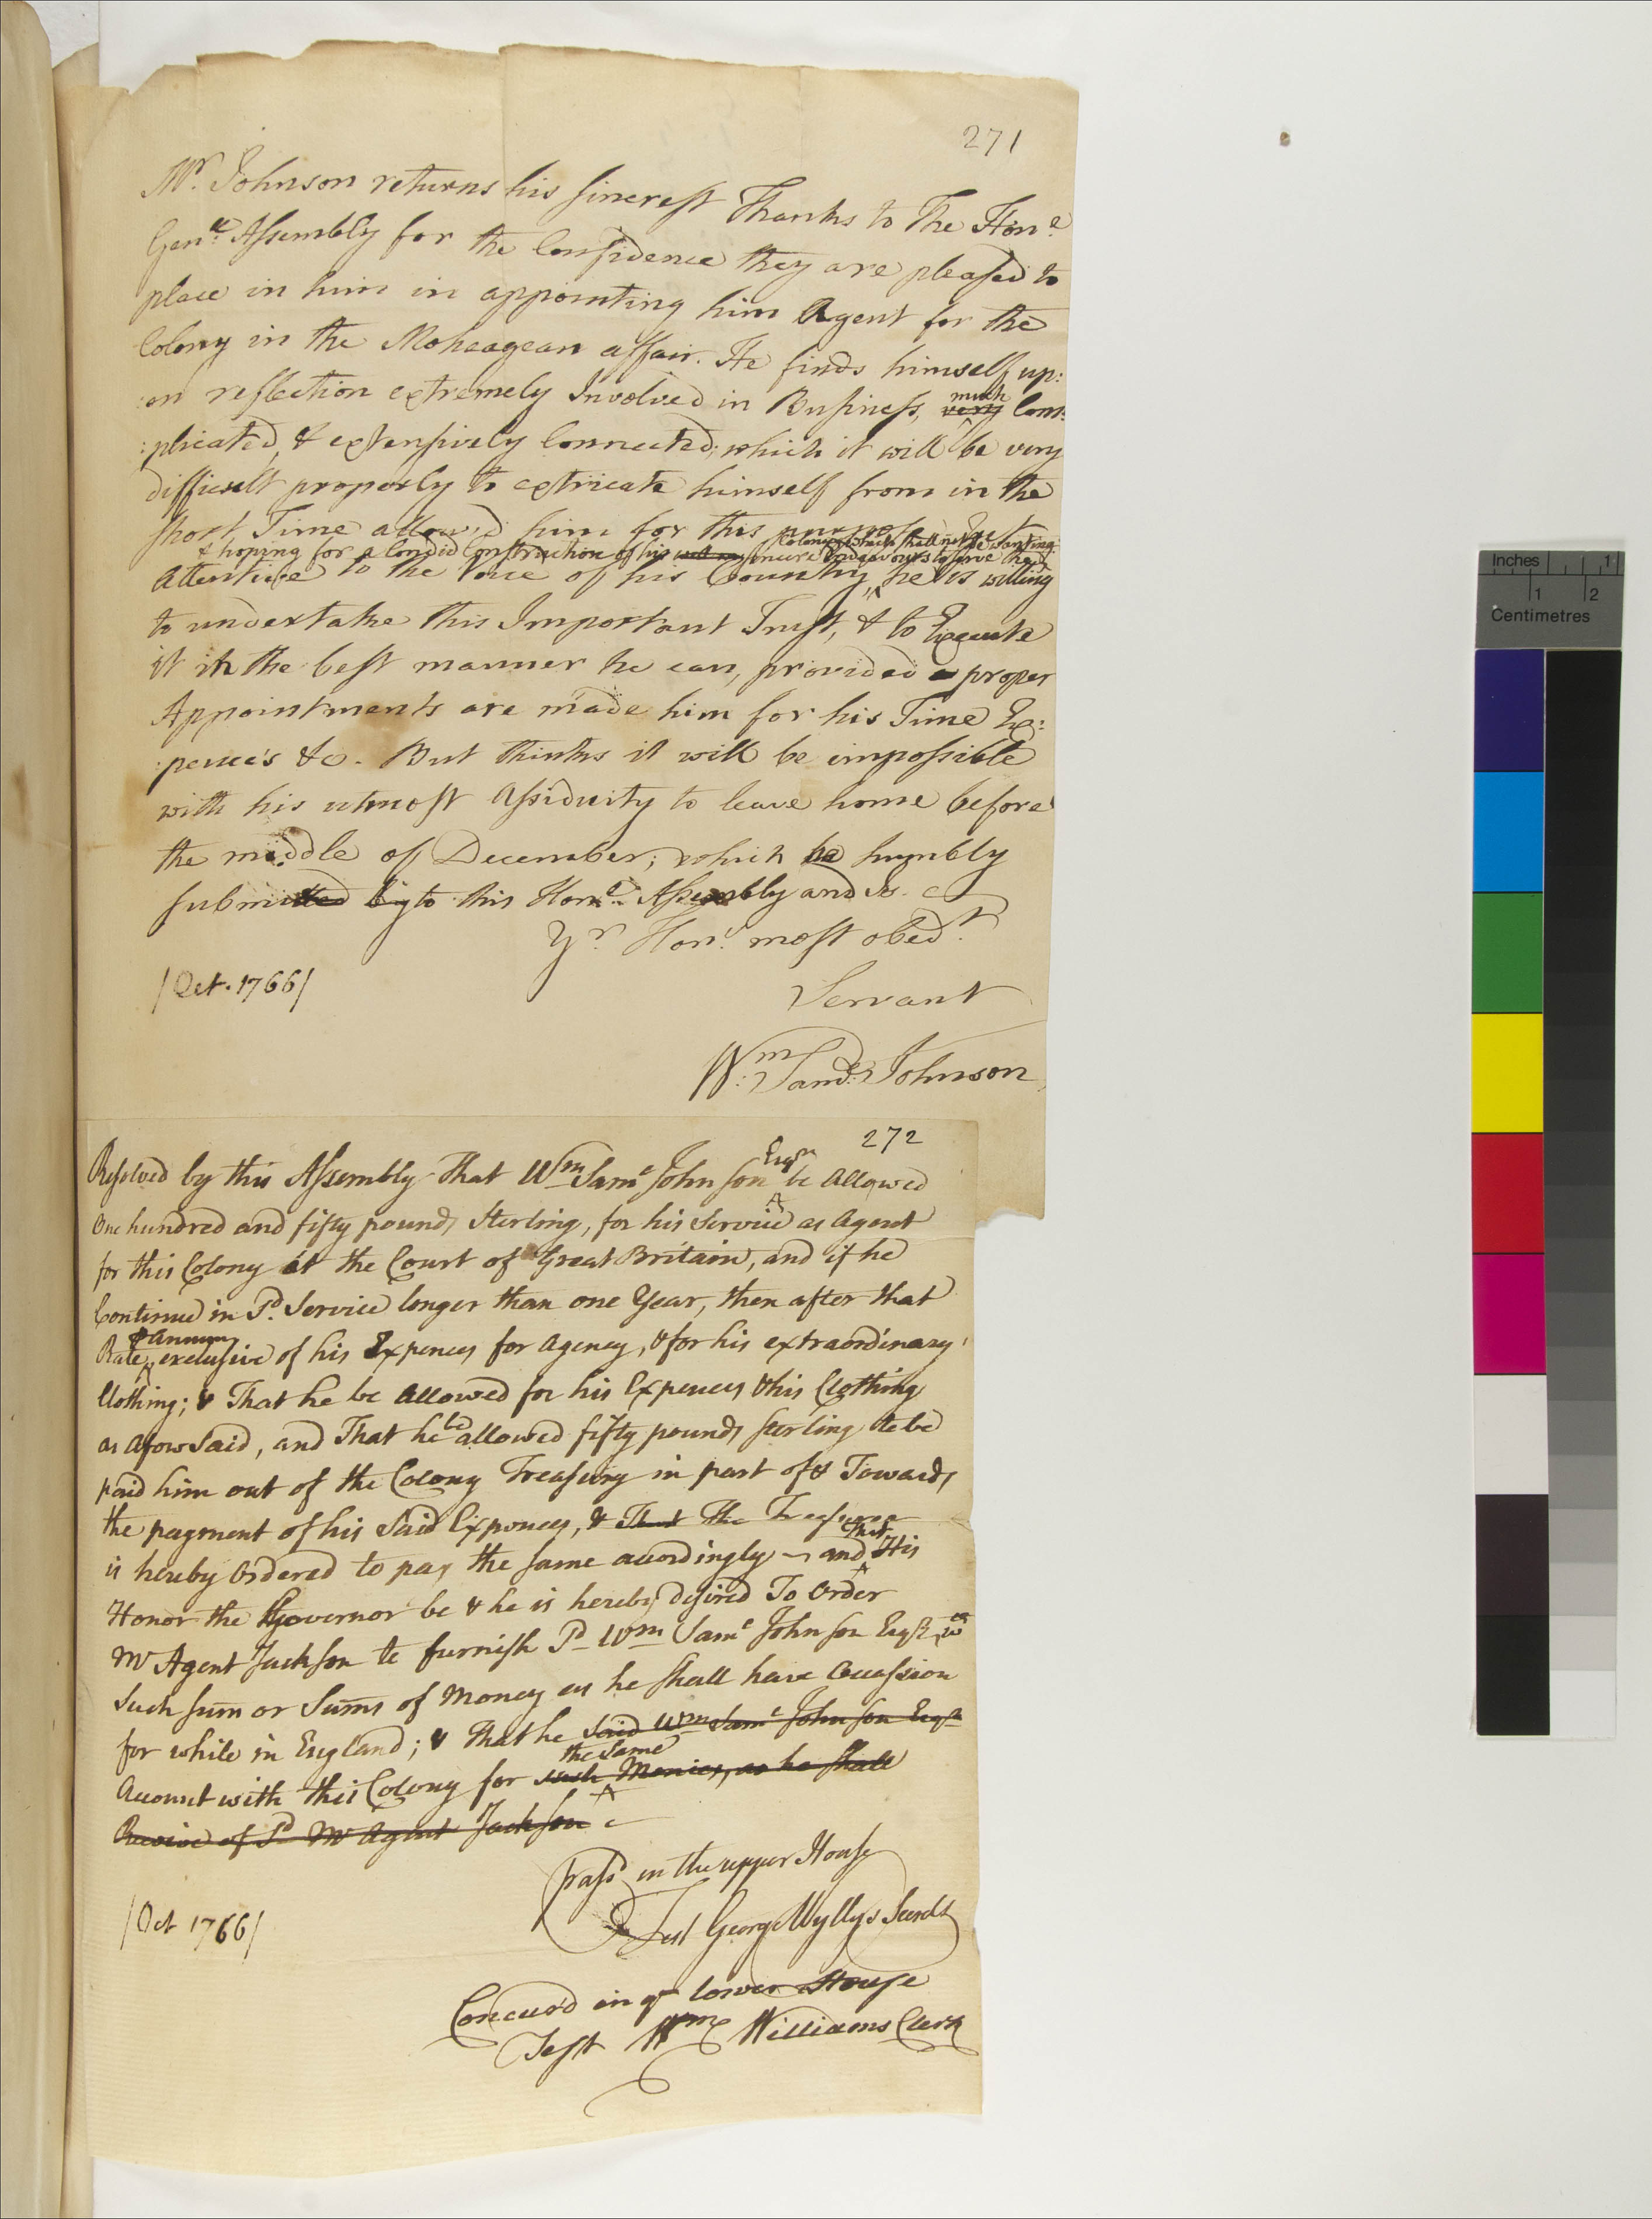 271
Mr. Johnson returns his sincerest Thanks to The Hon.e
Gen.ll Assembly for the Confidence they are pleased to
place in him in appointing him Agent for the
Colony in the Moheagean affair. He finds himself up:
:on reflection extremely Involved in Business, much very Com:
:plicated, & extensively Connected; which it will be very
difficult properly to extricate himself from in the
short Time allow'd him for this purpose. But
Colony which shall not be wanting
& hoping for a Candid Construction of his sincere Endeavours to serve the
Attentive to the Voice of his Country, he is willing
to undertake this Important Trust, & to Execute
it in the best manner he can, provided proper
Appointments are made him for his Time Ex:
:pence's &c. But thinks it will be impossible
with his utmost Assiduity to leave home before
the middle of December; which he humbly
submitted by to this Hon.e Assembly and is
Yr. Hon.s most obed.t
/Oct. 1766/
Servant
Wm: Saml: Johnson
272
Resolved by this Assembly That Wm Saml Johnson Esqr be Allowed
One hundred and fifty pounds Sterling, for his Service as Agent
for this Colony at the Court of Great Britain, and if he
Continue in Sd. Service longer than one Year, then after that
℔ Annum
Rate exclusive of his Expences for Agency, & for his extraordinary
Clothing; & That he be Allowed for his Expences & his Clothing
as aforesaid, and That he be allowed fifty pounds sterling to be
paid him out of the Colony Treasury in part of & Towards
the payment of his Said Expences, & That The Treasurer
is hereby Ordered to pay the same accordingly — and that His
Honor the Governor be & he is hereby desired To Order
Mr Agent Jackson to furnish Sd Wm Saml Johnson Esqr wth
Such sum or Sums of Money as he shall have Occassion
for while in England; & That he Said Wm Saml Johnson Esqr
the Same
Account with this Colony for such Monies, as he shall
Receive of Sd Mr Agent Jackson
Pass'd in the upper House
/Oct 1766/
Test George Wyllys Secret
Concurd in ye lower House
Test Wm Williams Clerk
Inches 1
1 2
Centimetres